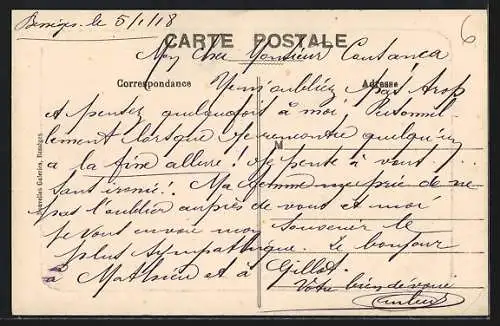 Bessèges, le 5/1/18
6
CARTE POSTALE
Mon cher Monsieur
Correspondance
Adresse
M'oubliez pas trop
et pensez quelquefois à moi. Personnel
lement lorsque je rencontre quelqu'un
M
à la fine allure ! Je pense à vous
sans ironie ! Ma femme me prie de ne
pas l'oublier auprès de vous et moi
je vous envoie mon souvenir le
plus sympathique. Le bonjour
à Mathieu et à Gillot.
Votre bien dévoué
Nouvelles Galeries, Bessèges